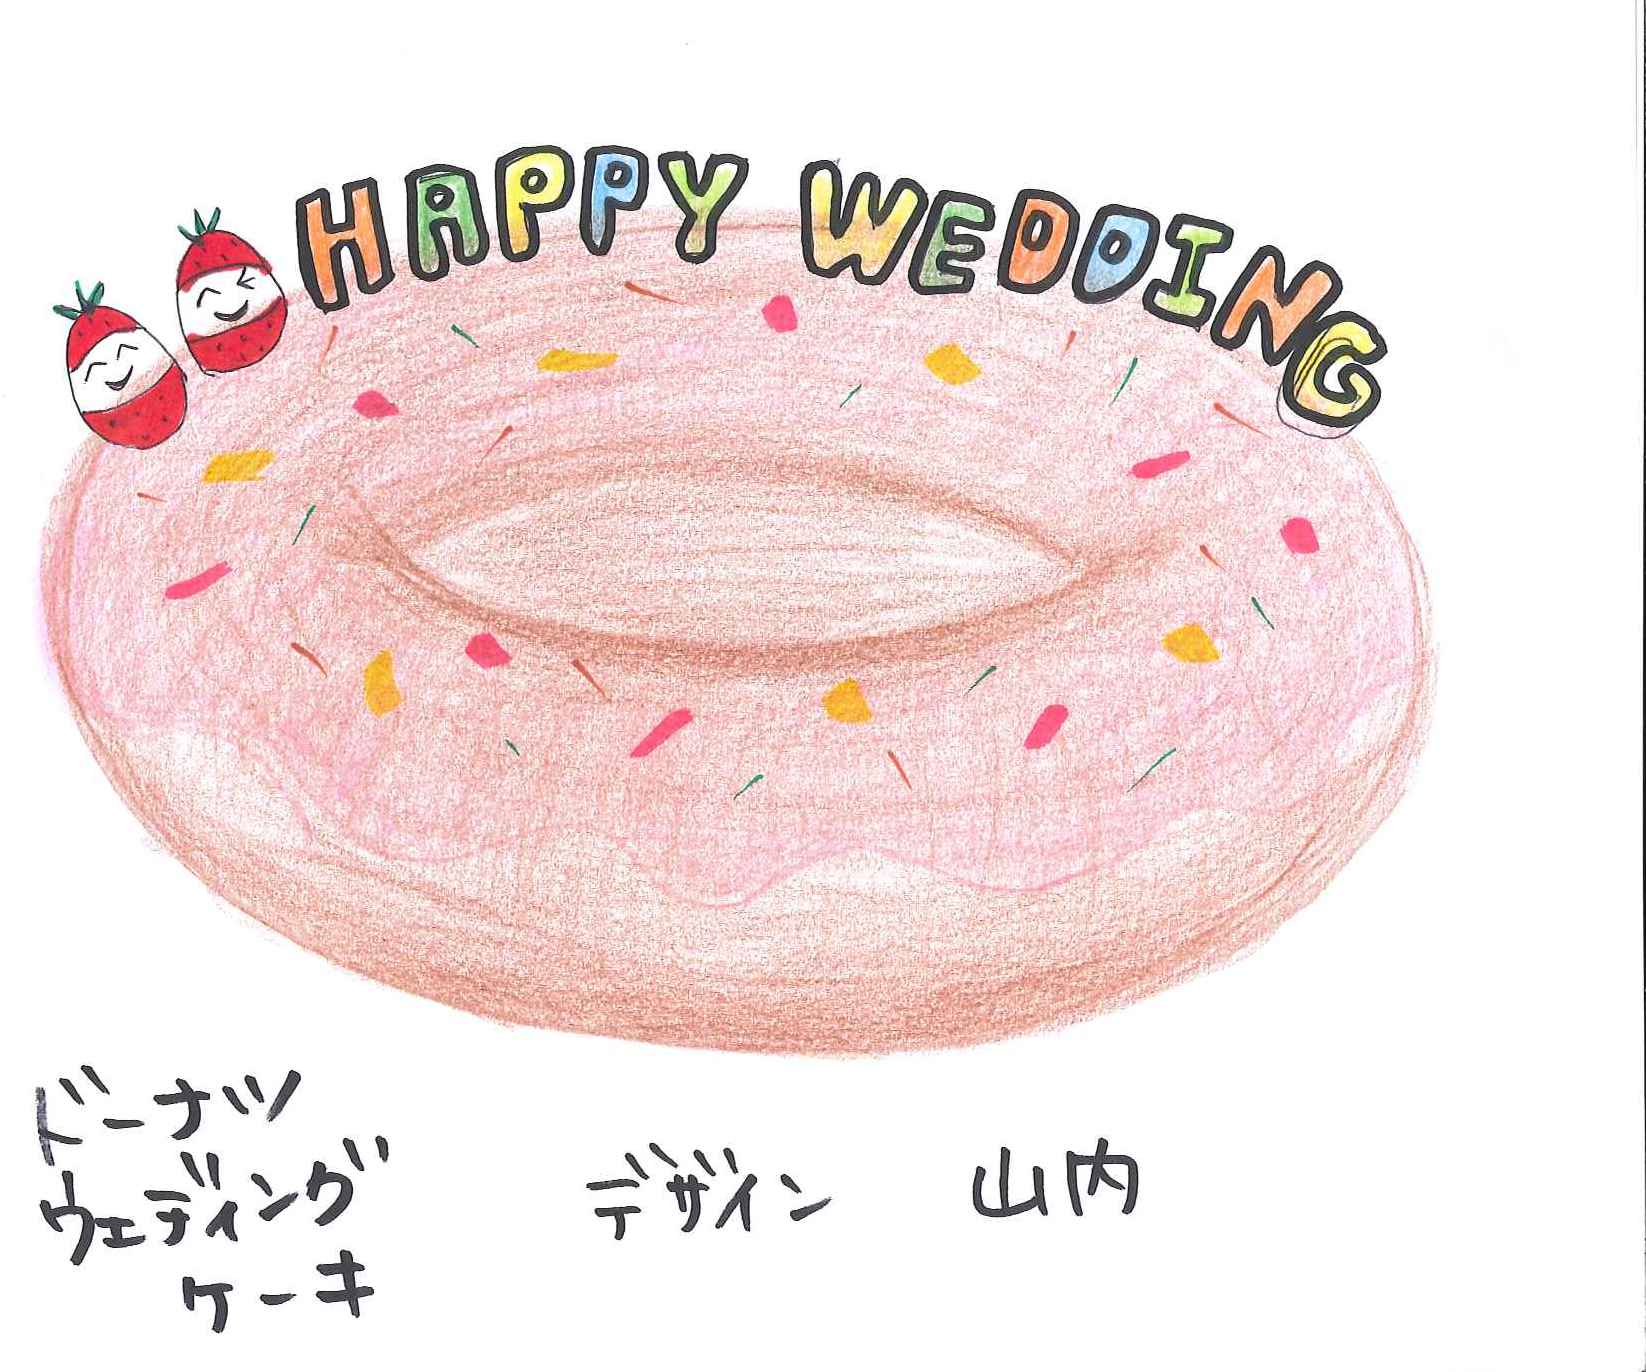 HAPPY WEDDING
ドーナツ
ウェディング
ケーキ
デザイン 山内